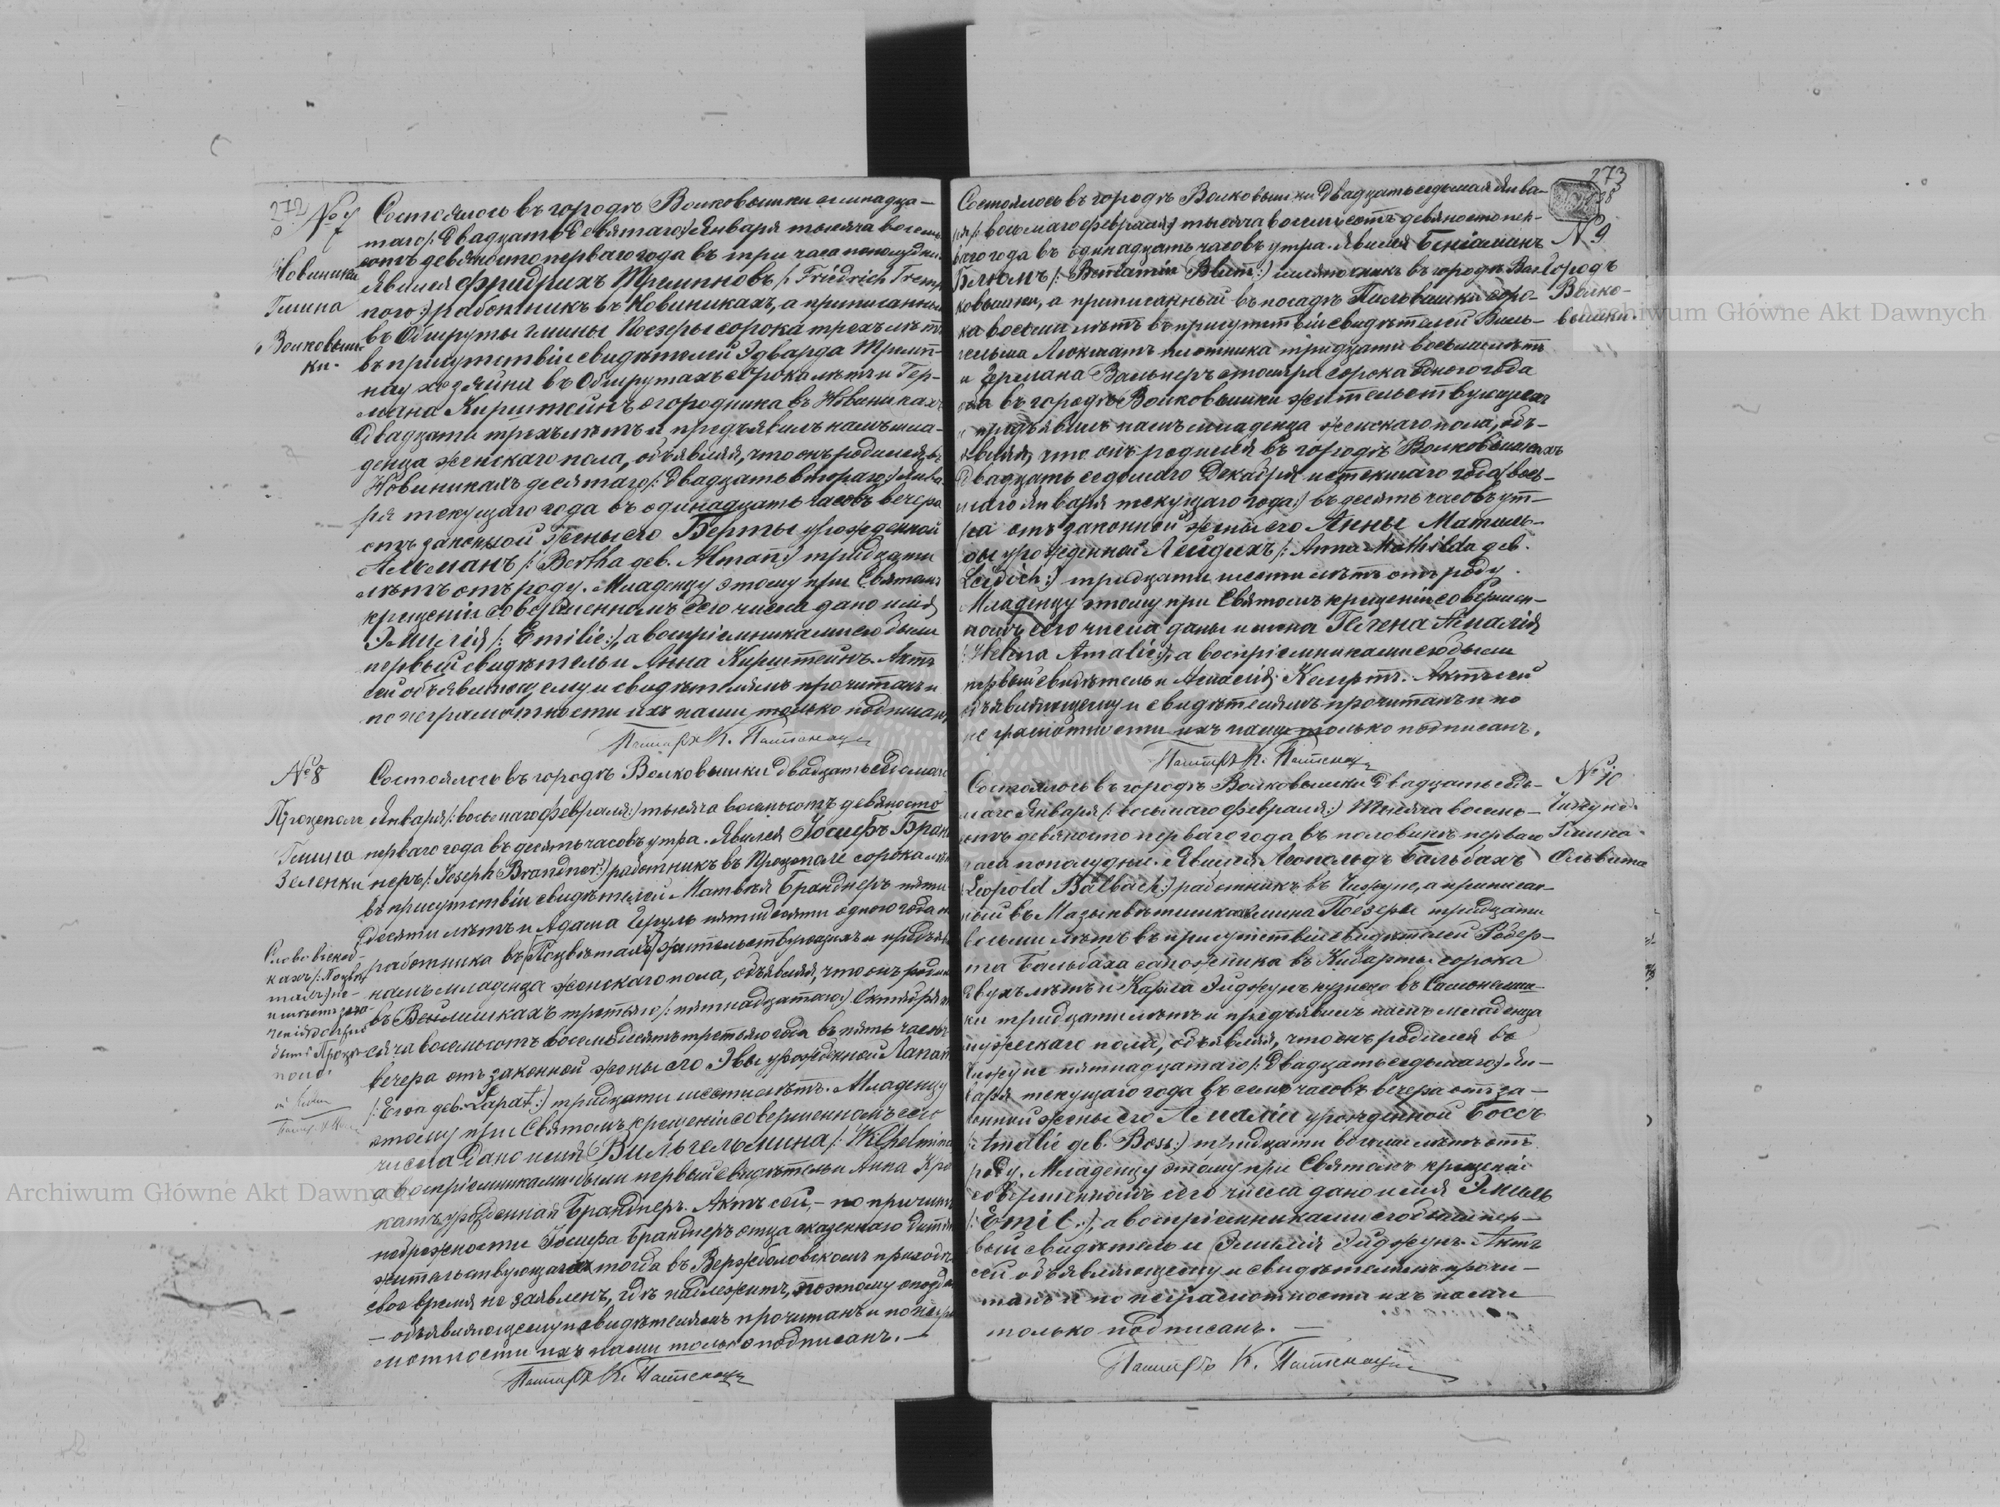 272
№ 7
Новиники
Гмина
Волковыш-
ки.
Состоялось въ городѣ Волковышки семнадца-
таго /: двадцать девятаго :/ Января тысяча восемь-
сотъ девяносто перваго года въ три часа пополудни.
Явился Фридрихъ Тремпновъ /: Friedrich Tremp
работникъ въ Новиникахъ, а приписанный
въ Обшруты гмины Поезеры сорока трехъ лѣтъ
въ присутствіи свидѣтелей Эдварда Тремп-
нау хозяина въ Обшрутахъ сорока лѣтъ и Гер-
мана Кирштейнъ огородника въ Новиникахъ
двадцати трехъ лѣтъ и предъявилъ намъ мла-
денца женскаго пола, объявляя, что онъ родился въ
Новиникахъ десятаго /: двадцать втораго :/ Янва-
ря текущаго года въ одинадцать часовъ вечера
отъ законной жены его Берты урожденной
Альманъ /: Bertha geb. Altman :/ тридцати
лѣтъ отъ роду. Младенцу этому при Святомъ
крещеніи совершенномъ сего числа дано имя
Эмилія /: Emilie :/, а воспріемниками его были
первый свидѣтель и Анна Кирштейнъ. Актъ
сей объявляющему и свидѣтелямъ прочитанъ и
по неграмотности ихъ нами только подписанъ.
Пасторъ К.
№ 8
Гмина
Зеленки
Состоялось въ городѣ Волковышки двадцать седьмаго
Января /: восьмаго февраля :/ тысяча восемьсотъ девяносто
перваго года въ десять часовъ утра. Явился Іосифъ Бранд-
неръ /: Joseph Brandner :/ работникъ въ сорока лѣтъ
въ присутствіи свидѣтелей Матвѣя Бранднеръ пяти-
десяти лѣтъ и Адама пятидесяти одного года
работника въ жительствующихъ и предъяв
намъ младенца женскаго пола, объявляя, что онъ родил
въ третьяго /: пятнадцатаго :/ Октября
сяча восемьсотъ восемьдесятъ третьяго года въ пять часовъ
вечера отъ законной жены его Эвы урожденной Лапат
/: Ewa geb. Lapat :/ тридцати шести лѣтъ. Младенцу
этому при Святомъ крещеніи совершенномъ сего
числа дано имя Вильгельмина /: Wilhelmina
а воспріемниками были первый свидѣтель и Анна
урожденная Бранднеръ. Актъ сей, – по причинѣ
небрежности Іосифа Бранднеръ отца сказаннаго дитяти
жительствующаго тогда въ Вержболовскомъ приходѣ
свое время не заявленъ, гдѣ надлежитъ, поэтому
– объявляющему и свидѣтелямъ прочитанъ и по негра-
мотности ихъ нами только подписанъ. –
Пасторъ К.
273
№ 9
Городъ
Волко-
вышки.
Состоялось въ городѣ Волковышки двадцать седьмая Янва-
ря /: восьмаго февраля :/ тысяча восемьсотъ девяносто пер-
ваго года въ одинадцать часовъ утра. Явился Беніаминъ
Блюмъ /: Beniamin Blum :/ въ городѣ Вол-
ковышки, а приписанный въ посадѣ Пильвишки соро-
ка восьми лѣтъ въ присутствіи свидѣтелей Виль-
гельма плотника тридцати восьми лѣтъ
и Германа Вальнеръ столяра сорока одного года
оба въ городѣ Волковышки жительствующихъ
и предъявилъ намъ младенца женскаго пола, объ-
являя, что онъ родился въ городѣ Волковышкахъ
двадцать седьмаго Декабря истекшаго года /: вось-
маго Января текущаго года :/ въ десять часовъ ут-
ра отъ законной жены его Анны Матиль-
ды урожденной Лейдихъ /: Anna Mathilda geb.
Leidich :/ тридцати шести лѣтъ отъ роду.
Младенцу этому при Святомъ крещеніи совершен-
номъ сего числа даны имена Гелена Амалія
/: Helena Amalie :/, а воспріемниками его были
первый свидѣтель и Амалія Актъ сей
объявляющему и свидѣтелямъ прочитанъ и по
неграмотности ихъ нами только подписанъ.
Пасторъ К.
№ 10
Гмина
Состоялось въ городѣ Волковышки двадцать седь-
маго Января /: восьмаго февраля :/ тысяча восемь-
сотъ девяносто перваго года въ половинѣ перваго
часа пополудни. Явился Леопольдъ Бальбахъ
/: Leopold Balbach :/ работникъ въ а приписан-
ный въ гмина Поезеры тридцати
восьми лѣтъ въ присутствіи свидѣтелей Робер-
та Бальбаха сапожника въ Кибарты сорока
двухъ лѣтъ и Карла кузнеца въ
ки тридцати лѣтъ и предъявилъ намъ младенца
мужескаго пола, объявляя, что онъ родился въ
пятнадцатаго /: двадцать седьмаго :/ Ян-
варя текущаго года въ семь часовъ вечера отъ за-
конной жены его Амаліи урожденной Боссъ
/: Amalie geb. Boss :/ тридцати восьми лѣтъ отъ
роду. Младенцу этому при Святомъ крещеніи
совершенномъ сего числа дано имя Эмиль
/: Emil :/, а воспріемниками его были пер-
вый свидѣтель и Эмилія Актъ
сей объявляющему и свидѣтелямъ прочи-
танъ и по неграмотности ихъ нами
только подписанъ. –
Пасторъ К.
Archiwum Główne Akt Dawnych
Archiwum Główne Akt Dawnych